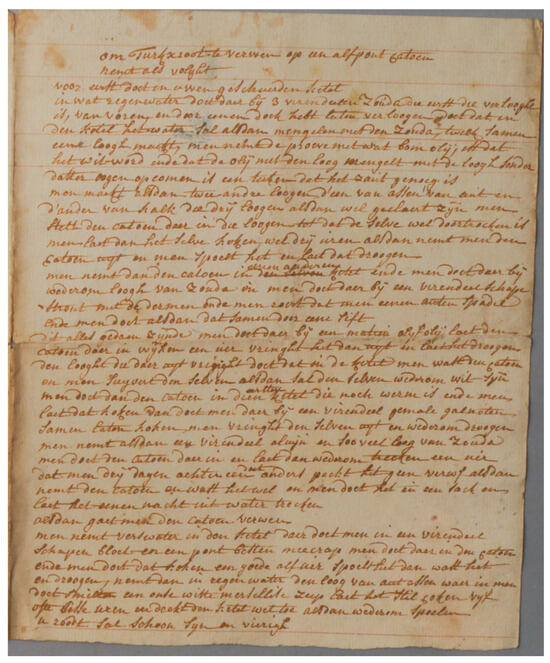 om Turkx root te verwen op een alf pont Catoen
nemt als volght
voor eerst doet in uwen geschuerden ketel
in wat regenwater doet daer bij 3 vierendeelen Zouda die eerst die verlooght
is, van voren, en door eenen doek hebt laten verloogen doet dat in
den ketel het water sal alsdan mengelen met den Zouda, twelk samen
eene loogh maeckt, men nemt de proeve met wat bom olij, ist dat
het wit word ende dat de olij met den loog mengelt met de loogh sonder
datter oogen opcomen is een teken dat het zaut genoeg is
men maeckt alsdan twee andre loogen d'een van assen van aut en
d'ander van kalk die drij loogen alsdan wel geclaert zijn men
stelt den catoen daer in die loogen tot dat de selve wel doortrocken is
men laet dan het selve koken, wel drij uren alsdan nemt men den
Catoen uyt en men spoelt het en laet dat droogen
men nemt dan den catoen in den ketel ende men doet daer bij
wederom loogh van Zouda en men doet daer bij een vierendeel schape
stront met de dermen onde men roert dat met eenen auten spadel
ende men doet alsdan dat samen door eene sift
dit alles gedaen zijnde men doet daer bij een olijfolij laet den
catoen daer in wijken een uer vringht het dan uyt en laet het droogen
den looght die daer uyt vringht doet dat in de ketel men wast den catoen
en men suyvert den selven alsdan sal den selven wederom wit sijn
men doet dan den catoen in dien ketel die noch werm is ende men
laet dat koken dan doet men daer bij een vierendeel gemale galnoten
samen laten koken, men vringht den selven uyt en wederom droogen
men nemt alsdan een vierendeel aluijn en soo veel loog van Zouda
men doet den catoen daer in en laet dan wederom trecken een uer
dat men drij dagen achter een doet anders peckt het geen verwe alsdan
nemt den Catoen en wast het wel en men doet het in een sack en
laet het eenen nacht uit water trecken
alsdan gaet men den catoen verwen
men nemt verswater in den ketel daer doet men in een vierendeel
schapen bloet en een pont besten meecrap men doet daer in den catoen
ende men doet dat koken een goede alf uer spoelt het dan wast het
en droogen, nemt dan in regen water den loog van aut assen waer in men
doet smilten een onse witte marsellise zeep laet het stil koken vyf
ofte sesse uren en deckt den ketel wel toe alsdan wederom spoelen
u roodt sal schoon syn en vierigh